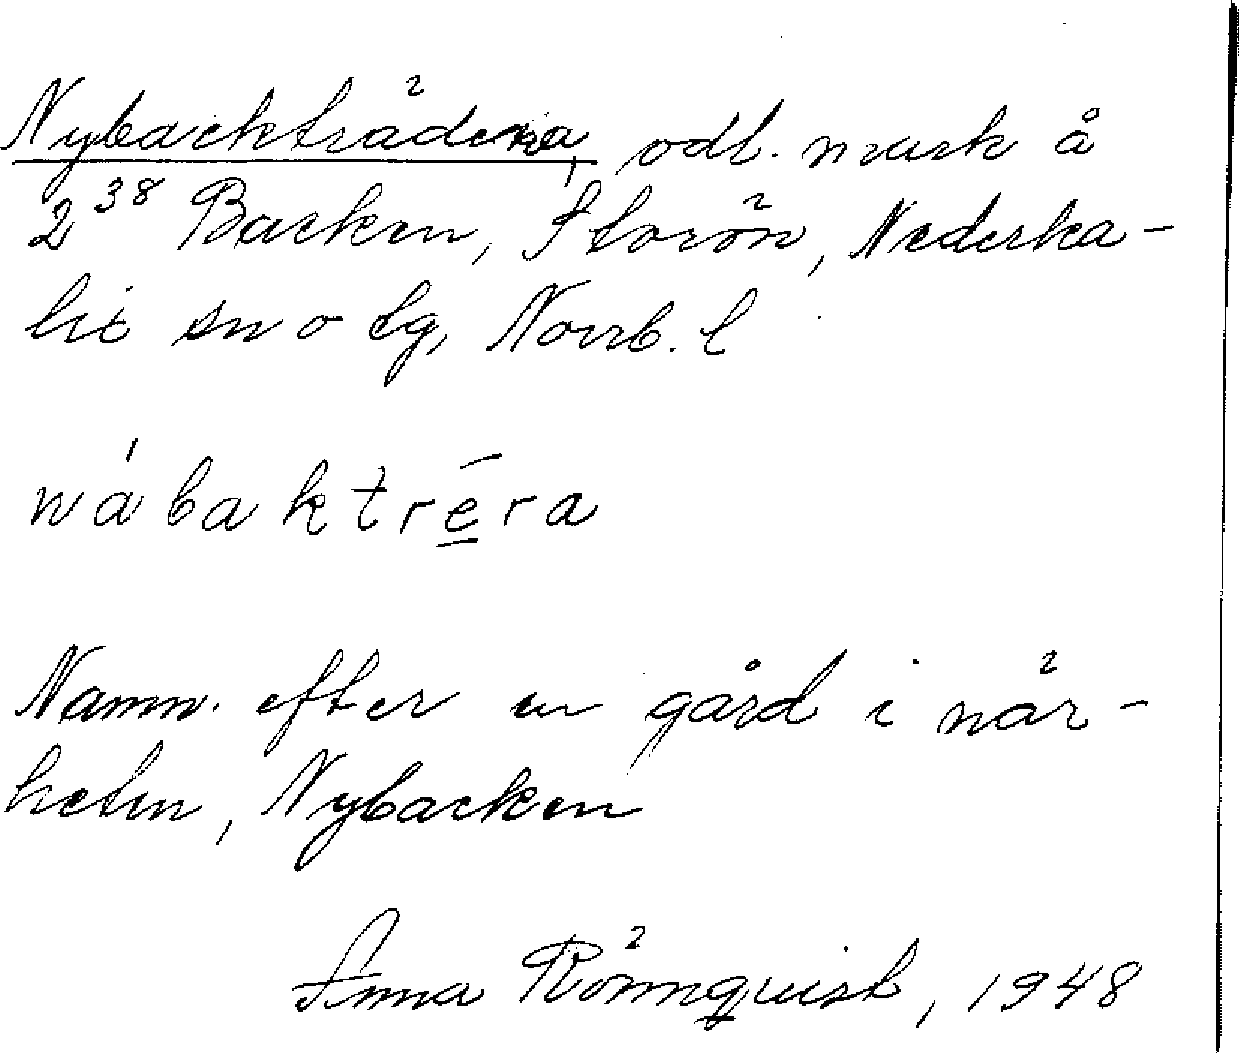 Nybackträdena, odl. mark å
2³⁸ Backen, Storön, Nederka-
lix sn o tg, Norrb. l
nábaktréra
Namn. efter en gård i när-
heten, Nybacken
Anna Rönnquist, 1948